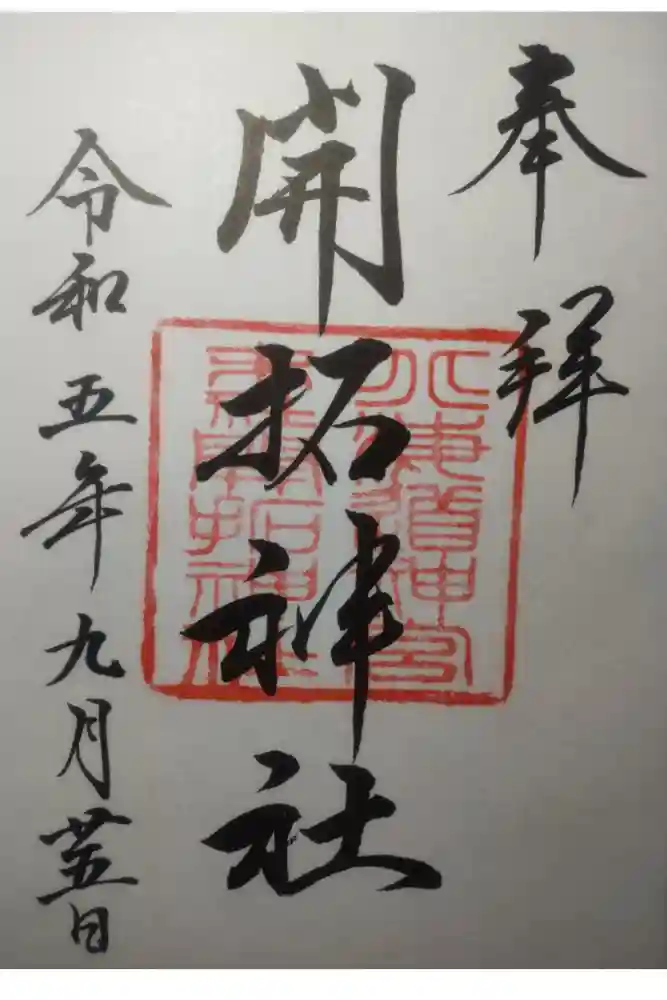 奉拝
開拓神社
北海道神宮
末社開拓神社
令和五年九月廿五日